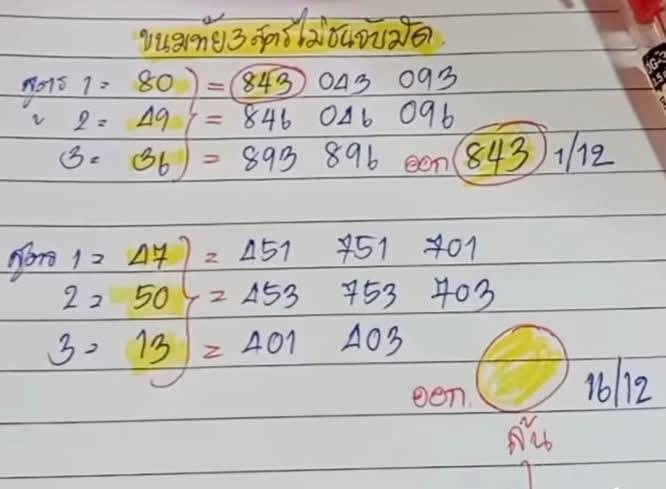 ขนมทัย 3 สูตรไม่ชนจับมัด
สูตร 1 = 80 = 843 043 093
" 2 = 49 = 846 046 096
3 = 36 = 893 896 ออก 843 1/12
สูตร 1 = 47 = 451 751 701
2 = 50 = 453 753 703
3 = 13 = 401 403
ออก. 16/12
ลุ้น